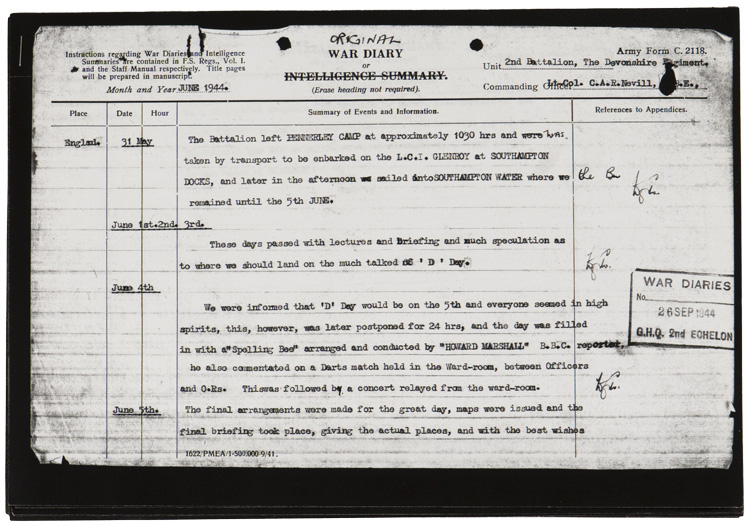 ORIGINAL
Instructions regarding War Diaries and Intelligence
Summaries are contained in F.S. Regs., Vol. I.
and the Staff Manual respectively. Title pages
will be prepared in manuscript.
Month and Year JUNE 1944.
WAR DIARY
or
INTELLIGENCE SUMMARY.
(Erase heading not required).
Army Form C. 2118.
Unit 2nd Battalion, The Devonshire Regiment.
Commanding Officer Lt-Col. C.A.R. Nevill,
Place Date Hour Summary of Events and Information. References to Appendices.
England. 31 May The Battalion left PENNERLEY CAMP at approximately 1030 hrs and were was
taken by transport to be enbarked on the L.C.I. GLENROY at SOUTHAMPTON
DOCKS, and later in the afternoon we sailed into SOUTHAMPTON WATER where we the Bn
remained until the 5th JUNE.
June 1st.2nd. 3rd.
These days passed with lectures and Briefing and much speculation as
to where we should land on the much talked of 'D' Day.
June 4th
We were informed that 'D' Day would be on the 5th and everyone seemed in high
spirits, this, however, was later postponed for 24 hrs, and the day was filled
in with a "Spelling Bee" arranged and conducted by "HOWARD MARSHALL" B.B.C reporter.
he also commentated on a Darts match held in the Ward-room, between Officers
and O.Rs. Thiswas followed by a concert relayed from the ward-room.
June 5th. The final arrangements were made for the great day, maps were issued and the
final briefing took place, giving the actual places, and with the best wishes
WAR DIARIES
No.
26 SEP 1944
G.H.Q. 2nd ECHELON
1622. PMEA/1-500.000-9/41.